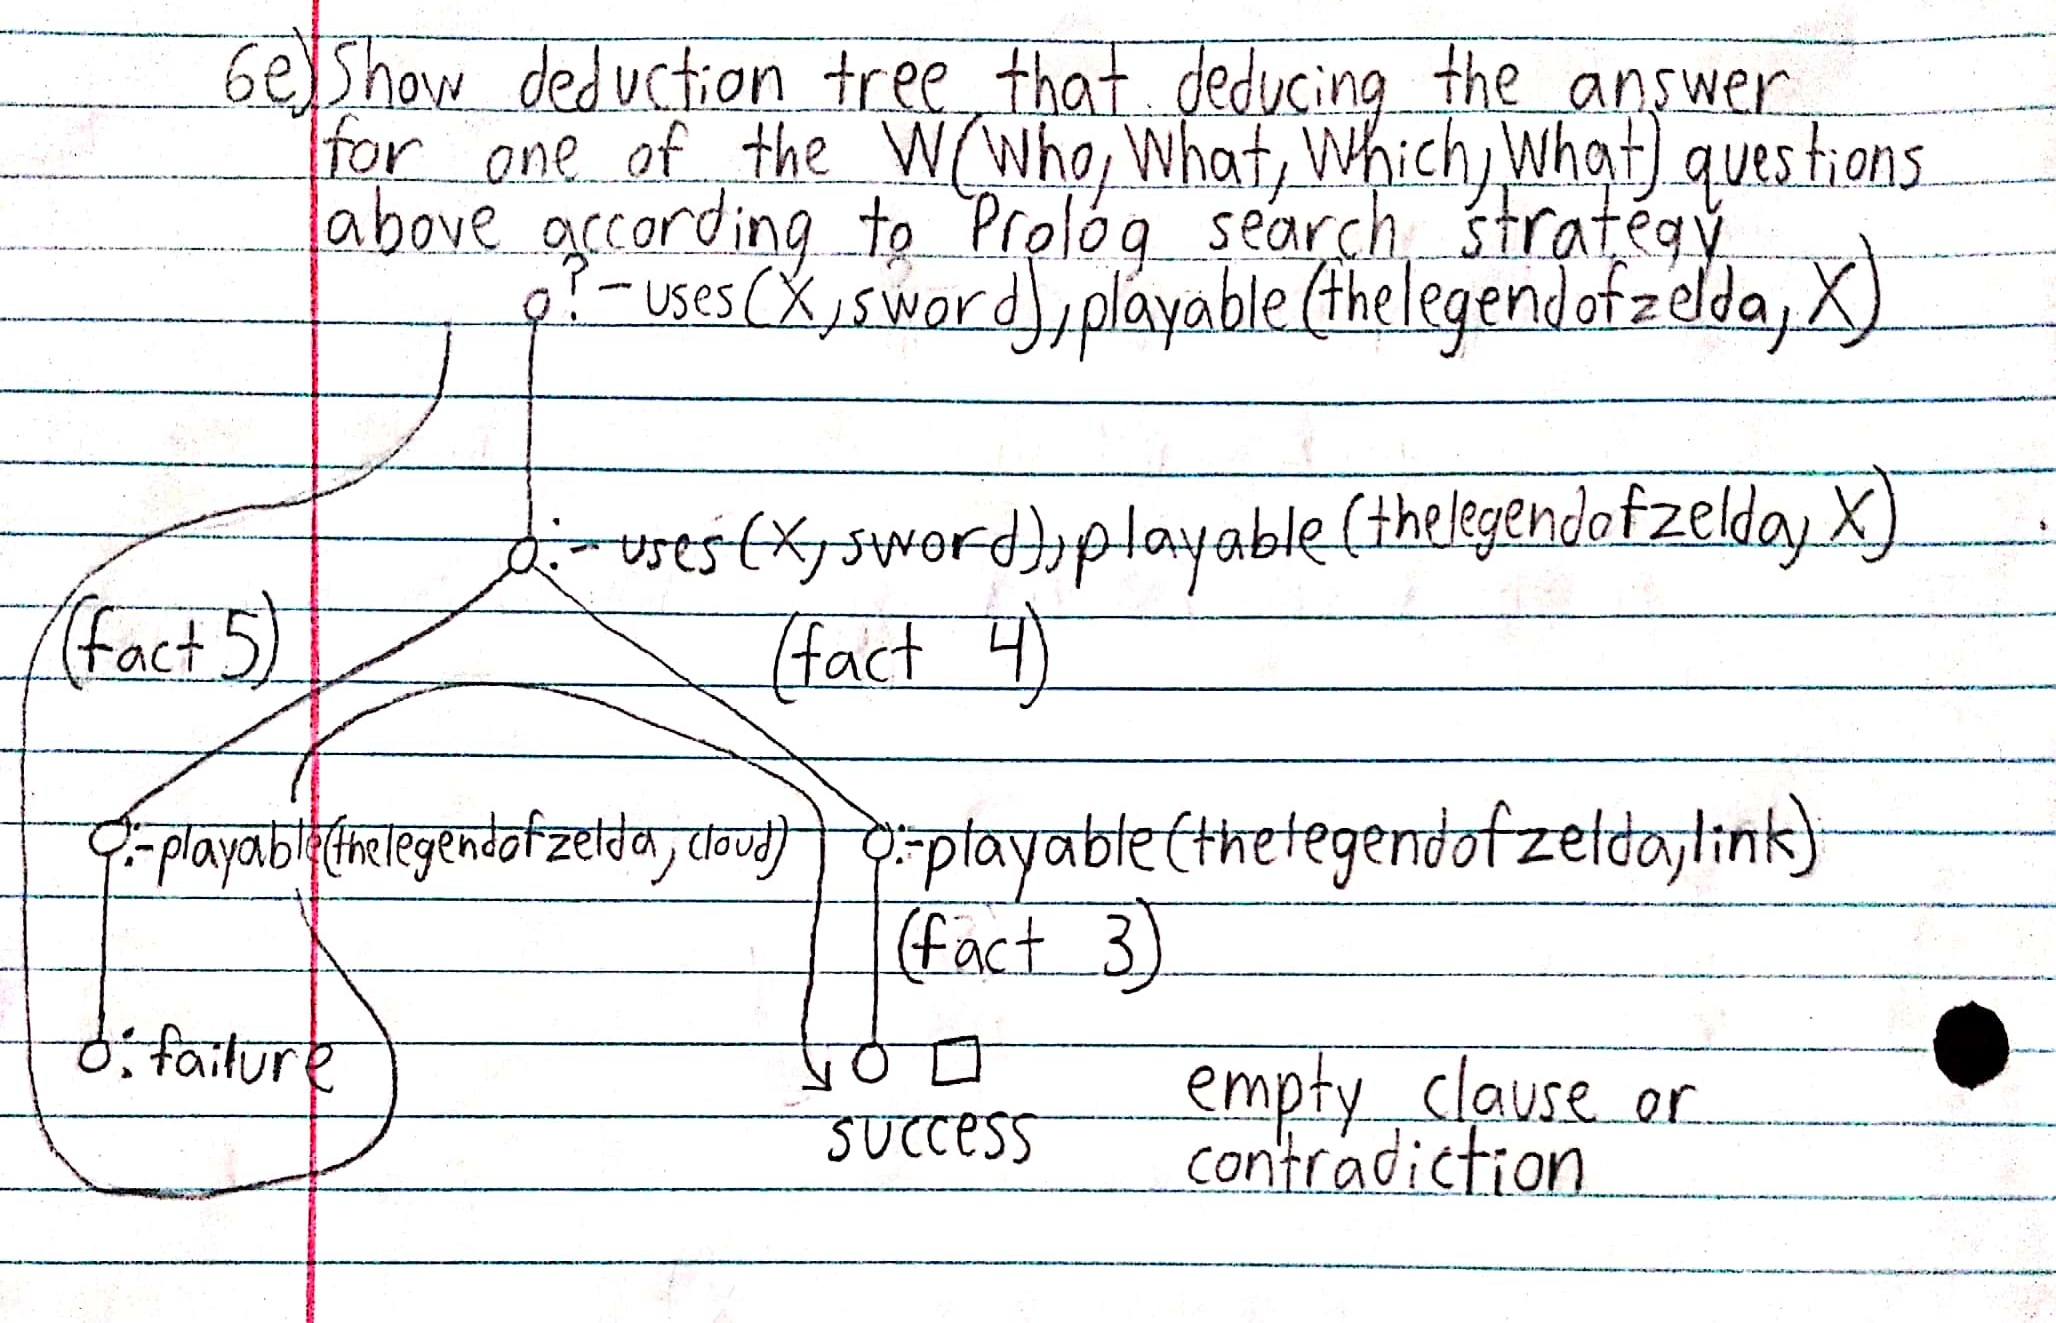 6e) Show deduction tree that deducing the answer
for one of the W(Who, What, Which, What) questions
above according to Prolog search strategy
?-uses(X, sword), playable(thelegendofzelda, X)
:- uses(X, sword), playable(thelegendofzelda, X)
(fact 5) (fact 4)
:-playable(thelegendofzelda, cloud) :-playable(thelegendofzelda, link)
(fact 3)
: failure
success
empty clause or
contradiction